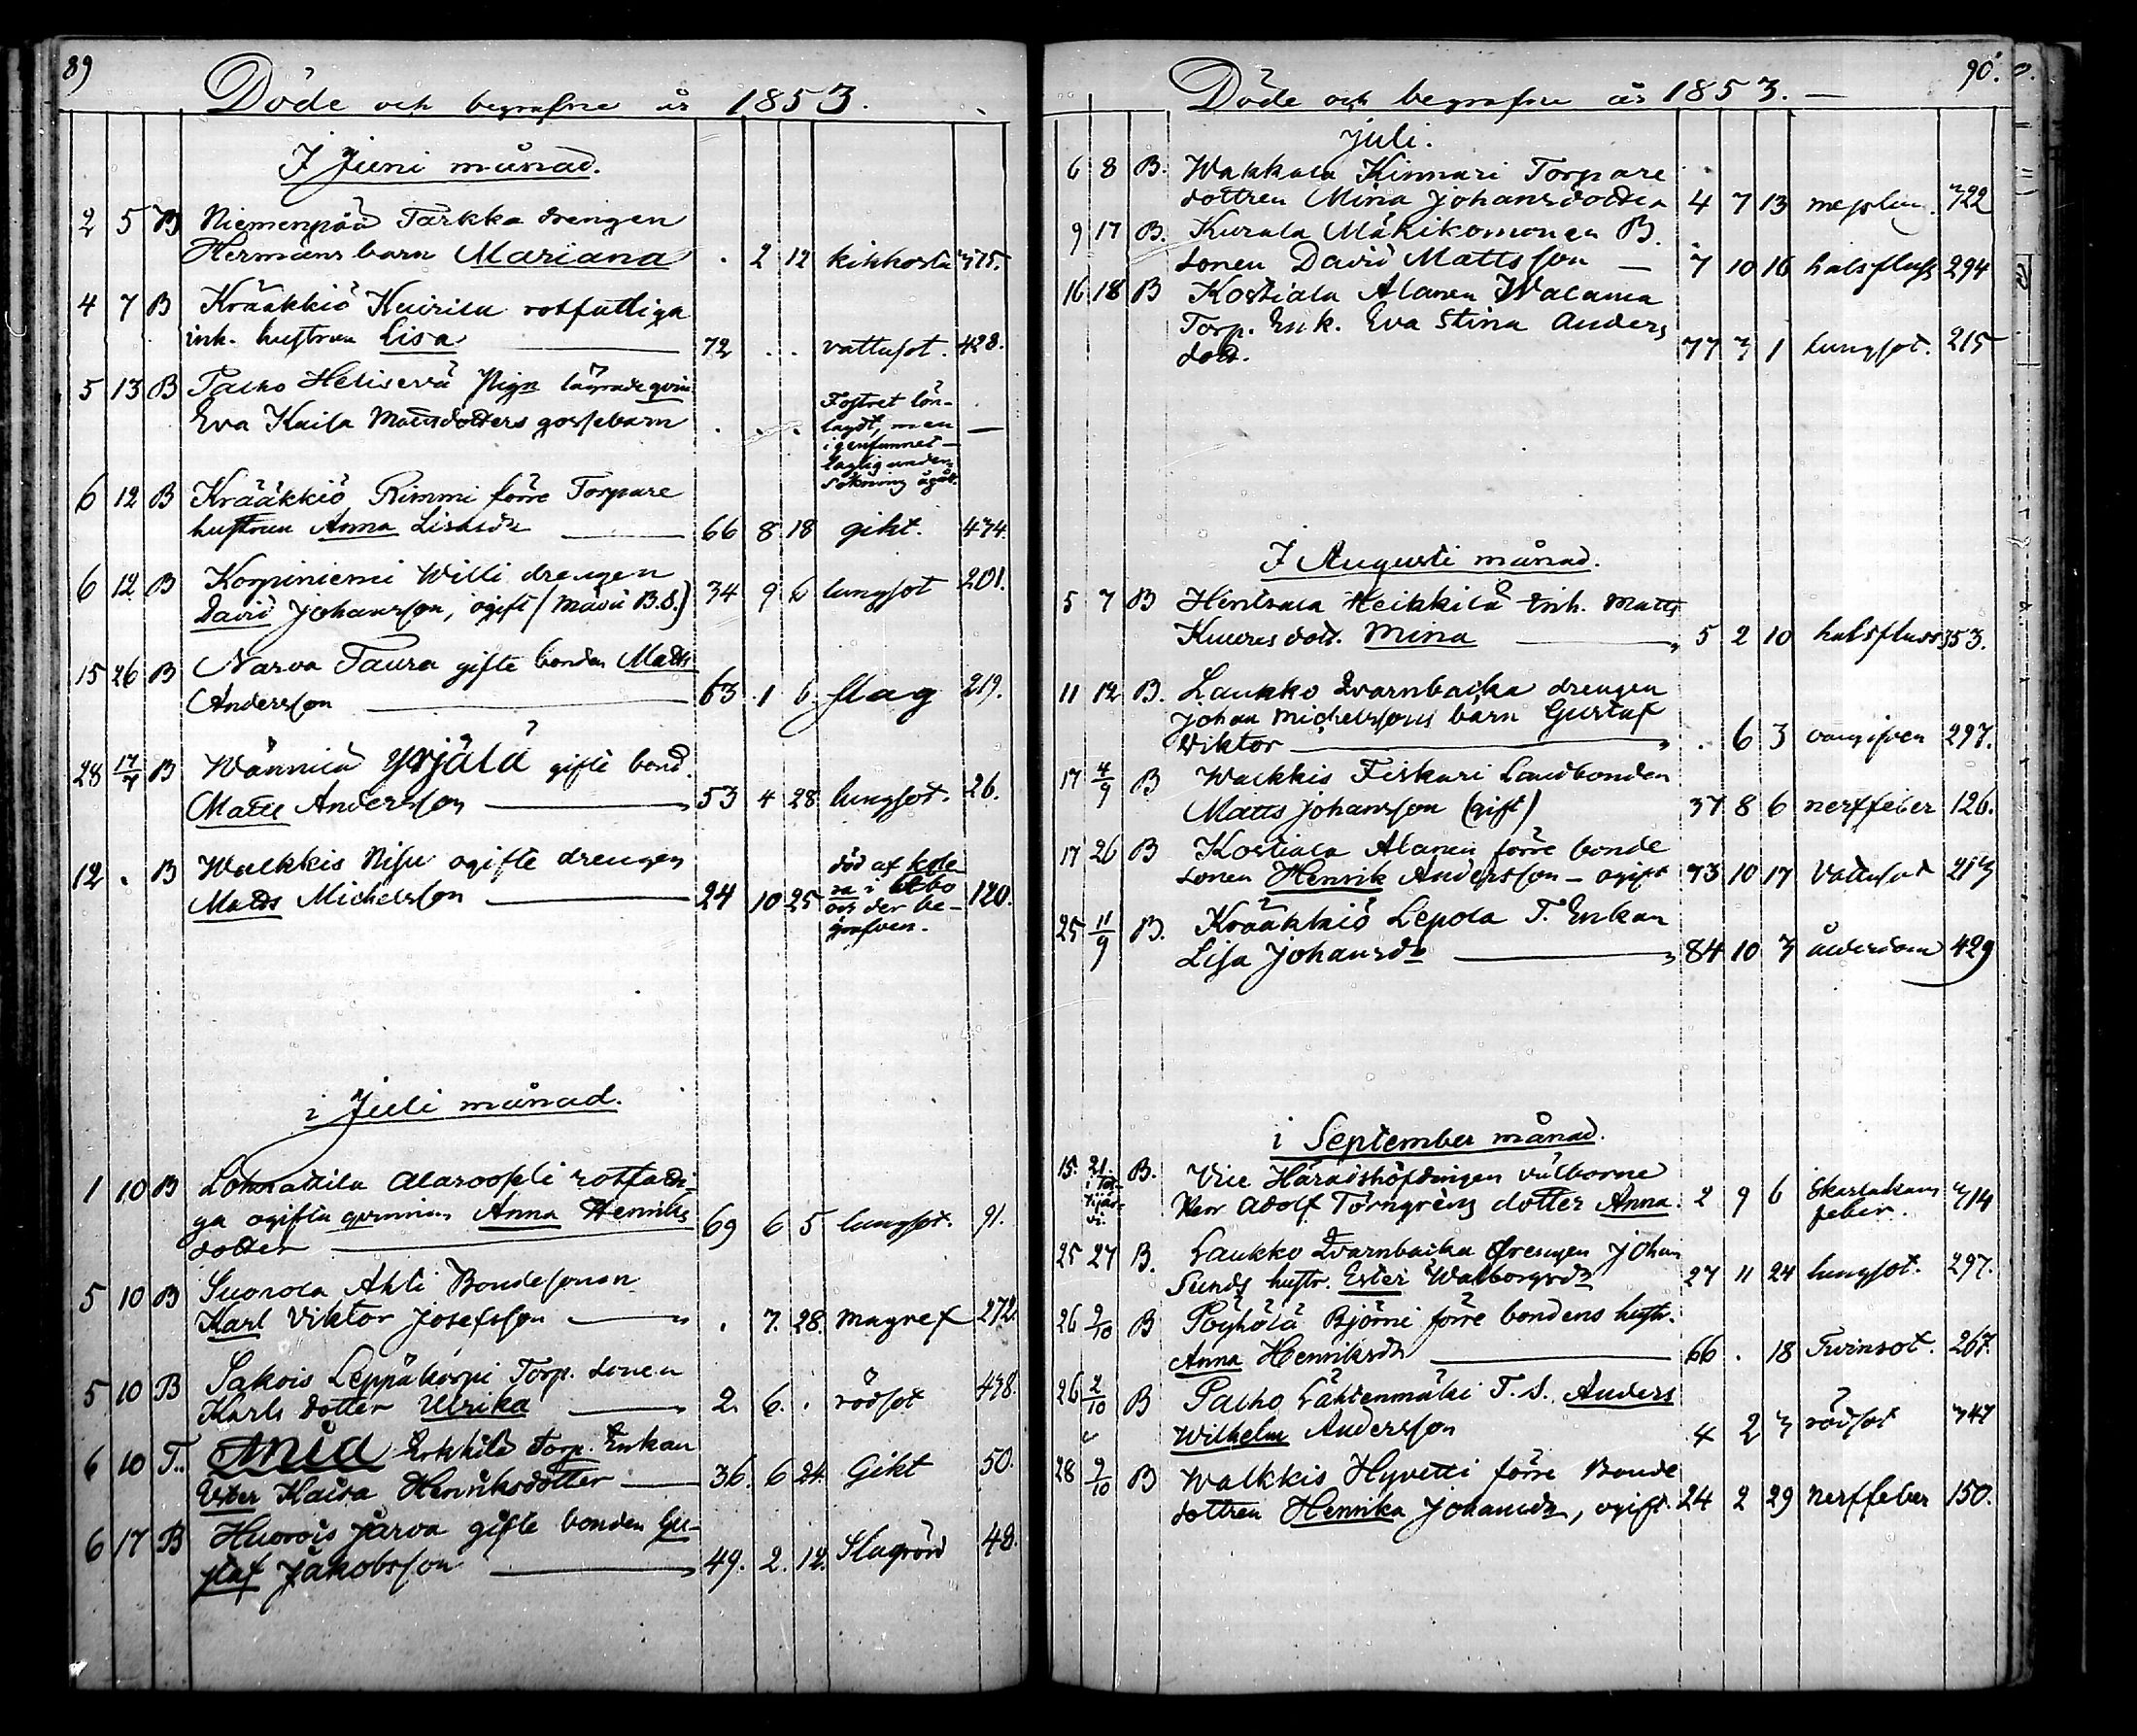 89
Döde och begrafne år 1853.
I Juni månad.
2 5 B Niemenpää Tarkka drengen
Hermans barn Mariana . 2 12 kikhosta 375.
4 7 B Krääkkiö Kuirila rotfattiga
inh. hustrun Lisa 72 . . vattusot. 428.
5 13 B Palho Heliserä Pign lägrade qvin
Eva Kaisa Mattsdotters gossebarn . . . Fostret lön-
lagdt, men —
igenfunnet —
laglig under-
sökning ägdt.
6 12 B Krääkkiö Rimmi förre Torpare
hustrun Anna Lisasdr 66 8 18 gikt. 434.
6 12 B Korpiniemi Willi drengen
David Johansson, ogift (Mävii B.S.) 34 9 6 lungsot 201.
15 26 B Narva Taura gifte bonden Matts
Andersson 63 1 6 slag 219.
28 17/7 B Wännilä Yrjälä gifte bond.
Matts Andersson 53 4 28 lungsot. 26.
12 . B Walkkis Nisu ogifte drengen
Matts Michelsson 24 10 25 död af kole-
ra i Åbo
och der be-
grafven. 120.
i Juli månad.
1 10 B Alaroopli rotfatti-
ga ogifta qvinnan Anna Henriks
dotter 69 6 5 lungsot. 91.
5 10 B Suonola Ahli Bondesonen
Karl Viktor Josefsson . 7. 28. magref 272.
5 10 B Sakois Leppäkorpi Torp. sonen
Karls dotter Ulrika 2. 6. . rödsot 438.
6 10 T. Ania Erkkilä Torp. Enkan
Ester Kaisa Henriksdotter 36. 6 24. Gikt 50.
6 17 B Huovois Järva gifte bonden Gu-
staf Jakobsson 49. 2. 12. Slagrörd 48.
90.
Döde och begrafne år 1853. —
Juli.
6 8 B. Wakkala Kinnari Torpare
dottren Mina Johansdotter 4 7 13 messlin. 322
9 17 B. Kurala Mäkikomonen B.
sonen David Mattsson — 7 10 16 halsfluss 294
16 18 B Kostiala Alanen Walama
Torp. Enk. Eva Stina Anders
dott. 77 3 1 lungsot. 215
I Augusti månad.
5 7 B Hinttala Heikkilä Inh. Matts
Kuures dott. Mina 5 2 10 halsfluss 353.
11 12 B. Laukko Qvarnbacka drengen
Johan Michelssons barn Gustaf
Viktor . 6 3 oangifven 297.
17 4/9 B Walkkis Fiskari Landbonden
Matts Johansson (gift) 37 8 6 nerffeber 126.
17 26 B Kostiala Alanen förre bonde
sonen Henrik Andersson — ogift 73 10 17 Vattusot 213
25 11/9 B. Krääkkiö Lepola T. Enkan
Lisa Johansdr 84 10 3 ålderdom 429
i September månad.
15. 21. B. Vice Häradshöfdingen välborne
Herr Adolf Törngrens dotter Anna. 2 9 6 Skarlakans
feber. 314
25 27 B. Laukko Qvarnbacka drengen Johan
Sunds hustr. Ester Walborgsdr 27 11 24 lungsot. 297.
26 2/10 B Pöyhölä Björni förre bondens hustr.
Anna Henriksdr 66 . 18 Tvinsot. 267.
26 2/10 B Palho Lähtenmäki T. S. Anders
Wilhelm Andersson 4 2 3 rödsot 347
28 9/10 B Walkkis Hyvetti förre Bonde
dottren Henrika Johansdr, ogift. 24 2 29 Nerffeber 150.